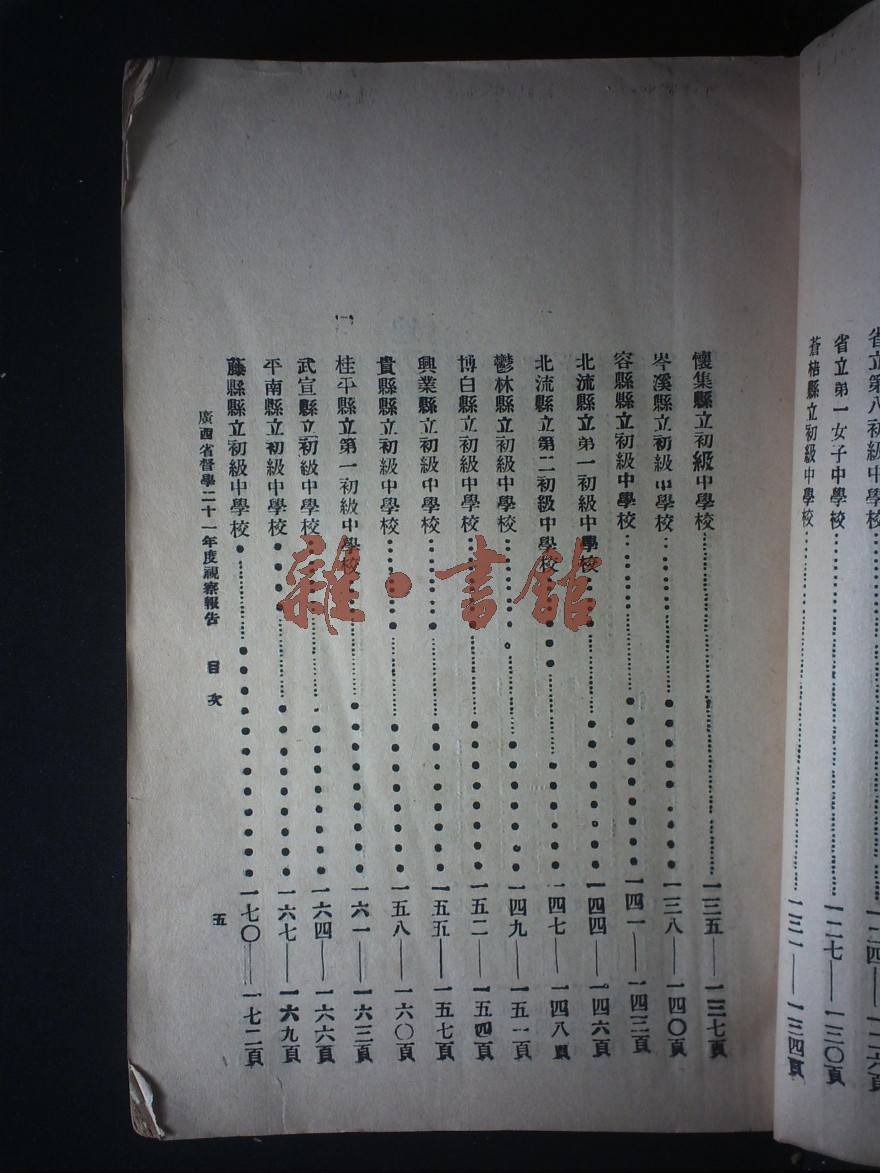 省立第八初級中學校 一二四——一二六頁
省立第一女子中學校 一二七——一三〇頁
蒼梧縣立初級中學校 一三一——一三四頁
懷集縣立初級中學校 一三五——一三七頁
岑溪縣立初級中學校 一三八——一四〇頁
容縣縣立初級中學校 一四一——一四三頁
北流縣立第一初級中學校 一四四——一四六頁
北流縣立第二初級中學校 一四七——一四八頁
鬱林縣立初級中學校 一四九——一五一頁
博白縣立初級中學校 一五二——一五四頁
興業縣立初級中學校 一五五——一五七頁
貴縣縣立初級中學校 一五八——一六〇頁
桂平縣立第一初級中學校 一六一——一六三頁
武宣縣立初級中學校 一六四——一六六頁
平南縣立初級中學校 一六七——一六九頁
藤縣縣立初級中學校 一七〇——一七二頁
廣西省督學二十一年度視察報告 目次 五
雜·書館